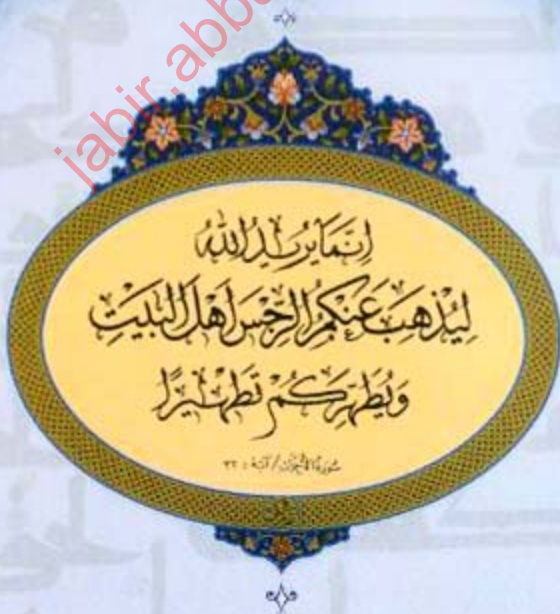 jabir.abba
إِنَّمَا يُرِيدُ اللّٰهُ
لِيُذْهِبَ عَنْكُمُ الرِّجْسَ أَهْلَ الْبَيْتِ
وَيُطَهِّرَكُمْ تَطْهِيرًا
سُورَةُ الأحزاب / آية : ٣٣